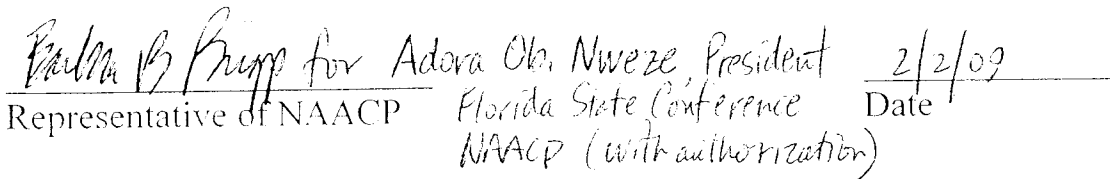 for Adora Obi Nweze, President 2/2/09
Representative of NAACP Florida State Conference Date
NAACP (with authorization)